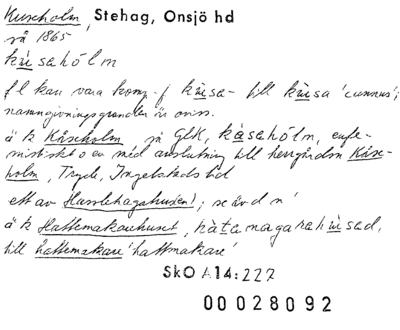 Kusholm, Stehag, Onsjö hd
så 1865
kʉ̀sahólm
f l kan vara komp.-f kʉ̀sa- till kʉ̀sa 'cunnus';
namngivningsgrunden är oviss.
ä k Kåseholm så GlK, kåsahólm, eufe-
mistiskt o ev med anslutning till herrgården Kåse-
holm, Tryde, Ingelstads hd
ett av Hasslehagahusen); se även d n
ä k Hattemakarehuset, hàtamagarahʉ̀sad,
till hattemakare 'hattmakare'
SkO A14:227
00028092